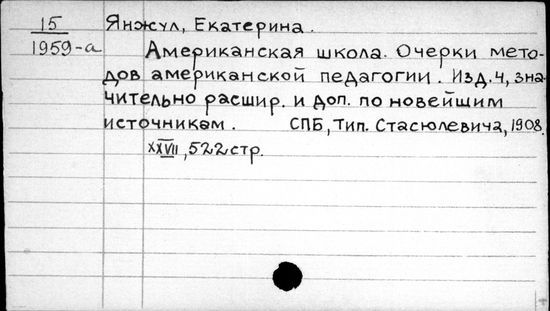 15 Янжул, Екатерина.
1959-а Американская школа. Очерки мето-
дов американской педагогии. Изд. 4, зна-
чительно расшир. и доп. по новейшим
источникам. СПБ, Тип. Стасюлевича, 1908.
XXVII, 522 стр.